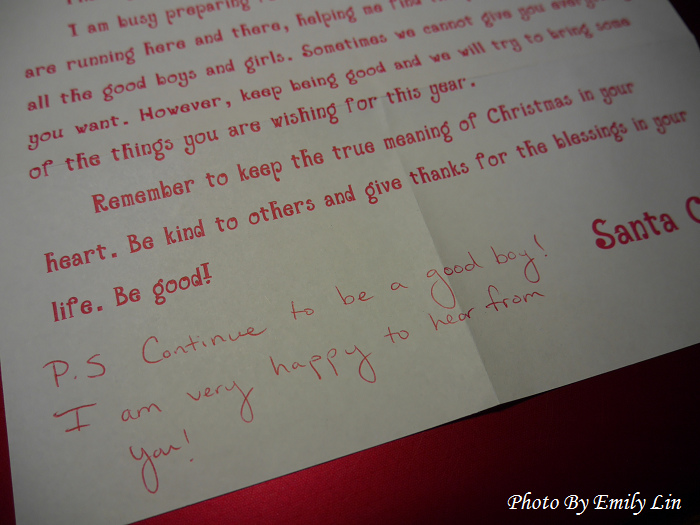 I am busy preparing
are running here and there, helping me find
all the good boys and girls. Sometimes we cannot give you
you want. However, keep being good and we will try to bring some
of the things you are wishing for this year.
Remember to keep the true meaning of Christmas in your
heart. Be kind to others and give thanks for the blessings in your
life. Be good!
Santa C
P.S Continue to be a good boy!
I am very happy to hear from
you!
Photo By Emily Lin